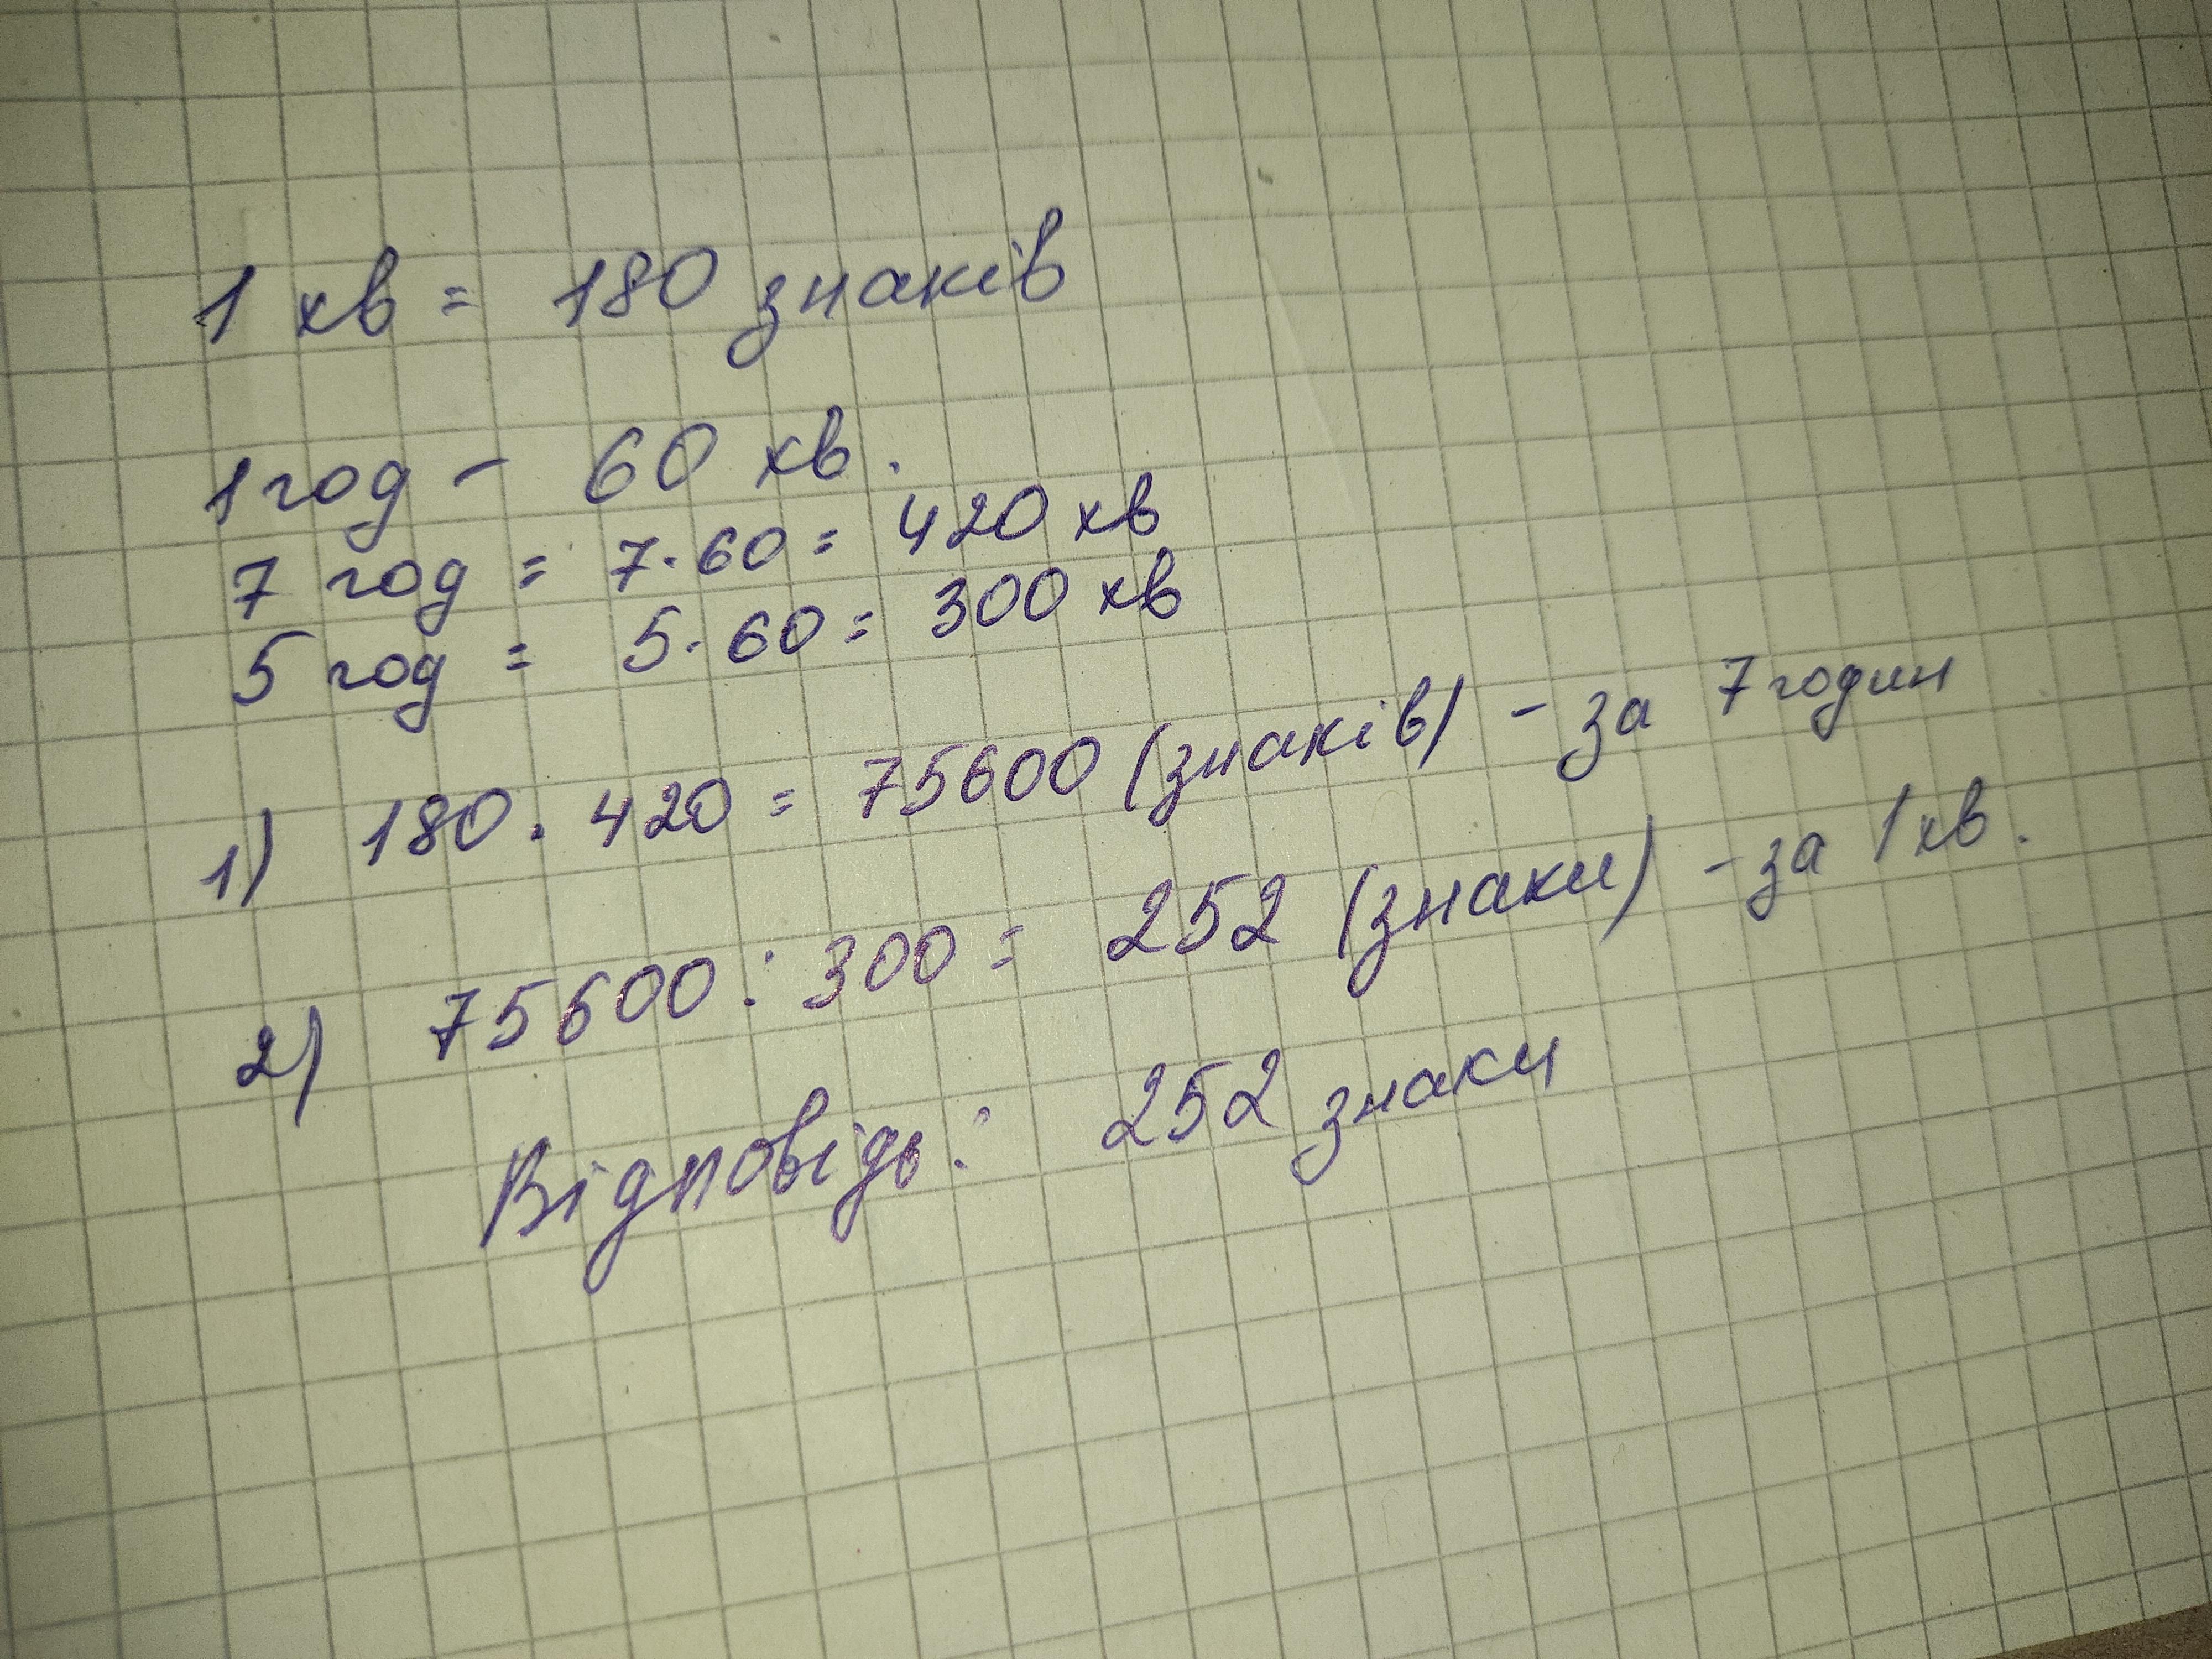 1 хв = 180 знаків
1 год - 60 хв.
7 год = 7·60 = 420 хв
5 год = 5·60 = 300 хв
1) 180 · 420 = 75600 (знаків) - за 7 годин
2) 75600 : 300 = 252 (знаки) - за 1 хв.
Відповідь: 252 знаки